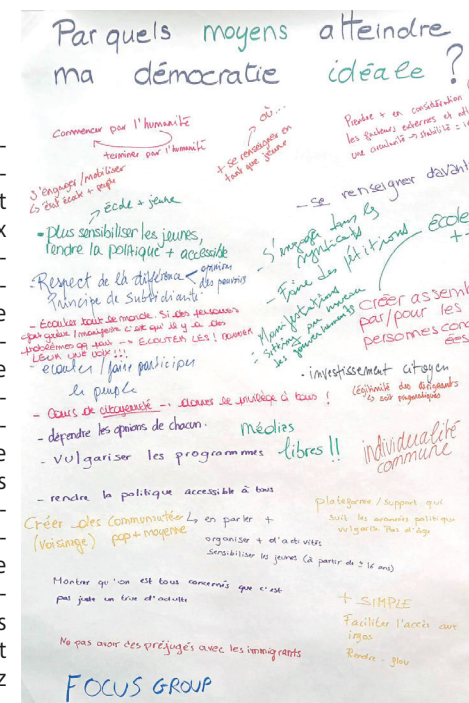 Par quels moyens atteindre
ma démocratie idéale ?
Commencer par l'humanité
terminer par l'humanité
où...
+ se renseigner en
tant que jeune
Prendre + en considération
les facteurs externes et
une
S'engager/mobiliser
↳ état école + peuple
école + jeune
• plus sensibiliser les jeunes,
rendre la politique + accessible
- Respect de la différence
opinions
des pouvoirs
Principe de Subsidiarité
- Écouter tout le monde. Si des personnes
c'est qu'il y a des
problèmes → ÉCOUTER LES! DONNER
LEUR UNE VOIX!!!
- écouter / faire participer
le peuple
- Cours de citoyenneté → donner le privilège à tous !
- défendre les opinions de chacun.
- Vulgariser les programmes
médias
libres !!
- se renseigner
- S'engager dans les
syndicats
- Faire des pétitions
- Manifestations
- Sitting au niveau
des gouvernements
école
+
créer
par/pour les
personnes
• investissement citoyen
(légitimité des dirigeants
↳ soit pragmatiques
individualité
commune
- rendre la politique accessible à tous
Créer des Communautés
(voisinage) pop + moyenne
↳ en parler +
organiser + d'activités
sensibiliser les jeunes (à partir de ± 16 ans)
plateforme / support qui
suit les politique
vulgaris. Pas d'âge
Montrer qu'on est tous concernés que c'est
pas juste un truc d'adulte
+ SIMPLE
Faciliter l'accès aux
infos
Rendre + glow
Ne pas avoir des préjugés avec les immigrants
FOCUS GROUP